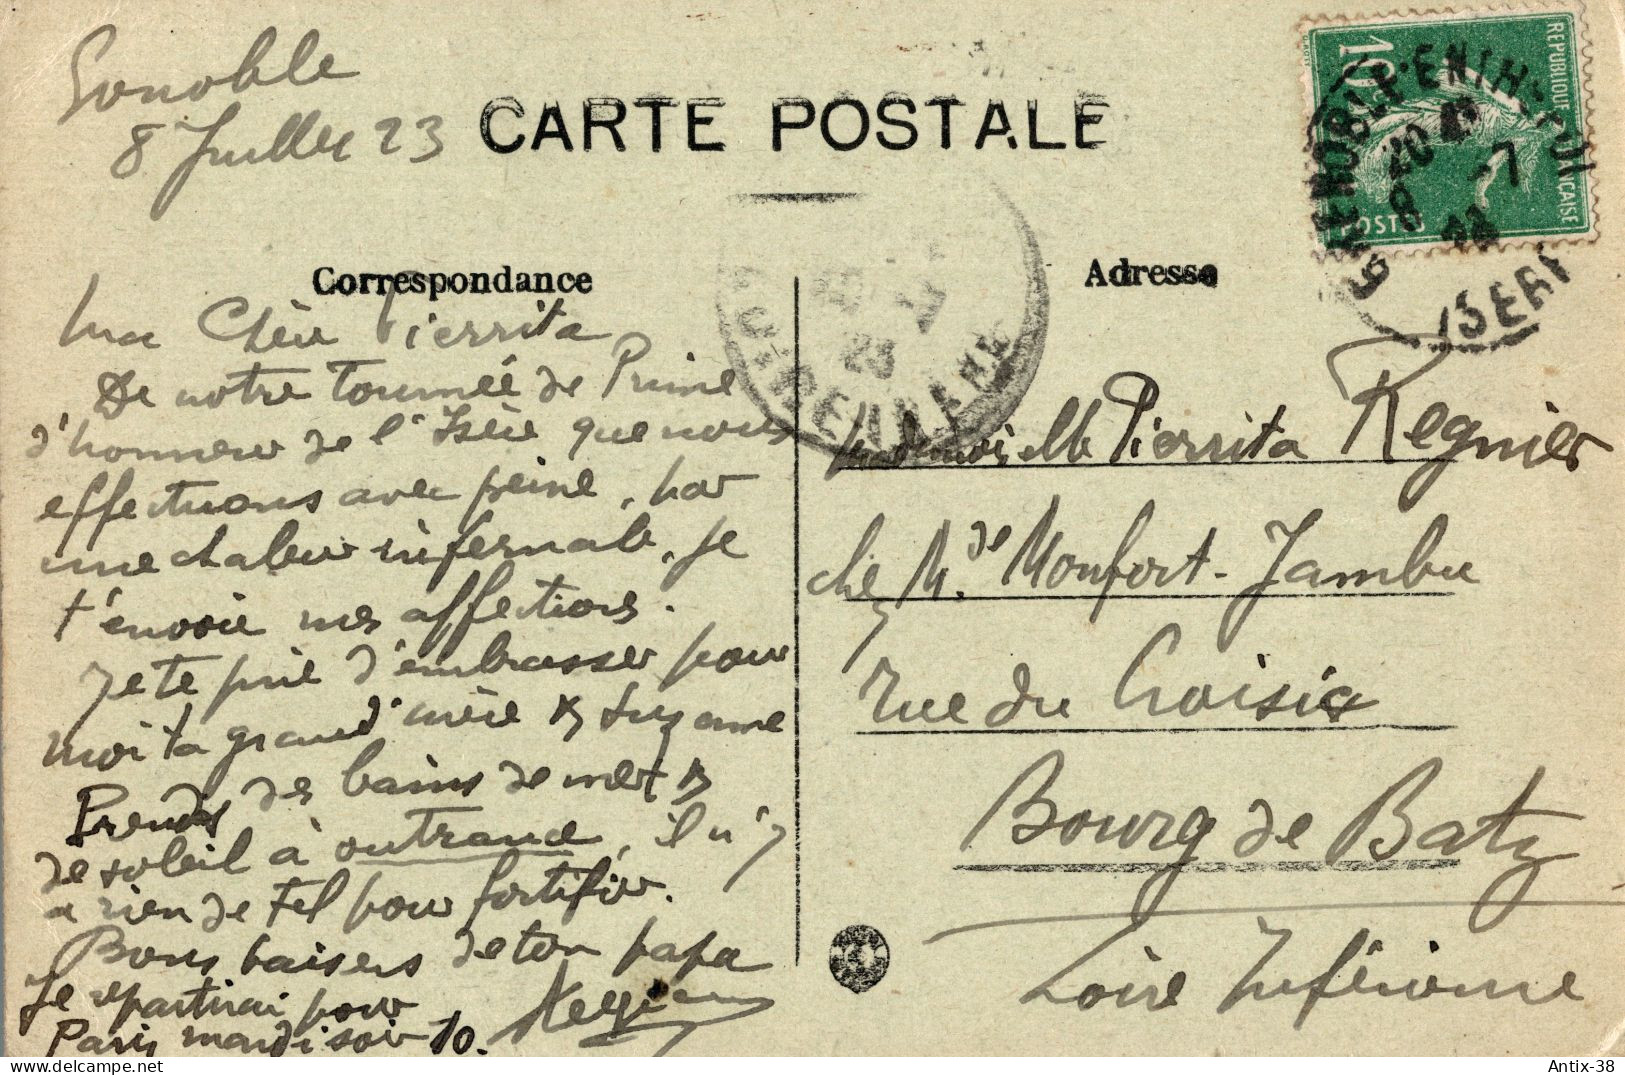 Grenoble
8 Juillet 23
CARTE POSTALE
RÉPUBLIQUE FRANÇAISE
10
POSTES
GRENOBLE
ISERE
Correspondance
Adresse
Ma Chère Pierrita
De notre Tournée de Prime
d'honneur de l'Isère que nous
effectuons avec peine, par
une chaleur infernale, je
t'envoie mes affections.
Je te prie d'embrasser pour
moi ta grand'mère & Suzanne
Prends des bains de mer &
de soleil à outrance, il n'y
a rien de tel pour fortifier.
Bons baisers de ton papa
Je repartirai pour
Paris mardi soir 10.
Mademoiselle Pierrita Regnier
chez Mde Monfort-Jambu
rue du Croisic
Bourg de Batz
Loire Inférieure
Antix-38